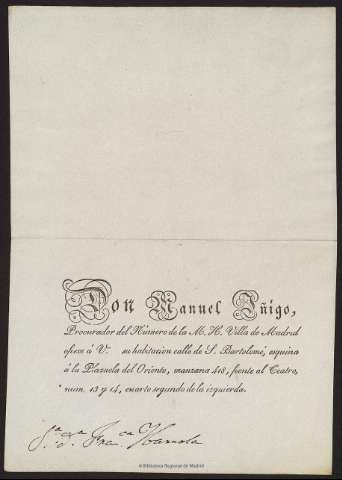 Don Manuel Iñigo,
Procurador del Número de la M. H. Villa de Madrid
ofrece á V. su habitacion calle de S. Bartolomé, esquina
á la Plazuela del Oriente, manzana 413, frente al Teatro,
num. 13 y 14, cuarto segundo de la izquierda.
Fran.ca Ibarrola
Biblioteca Regional de Madrid